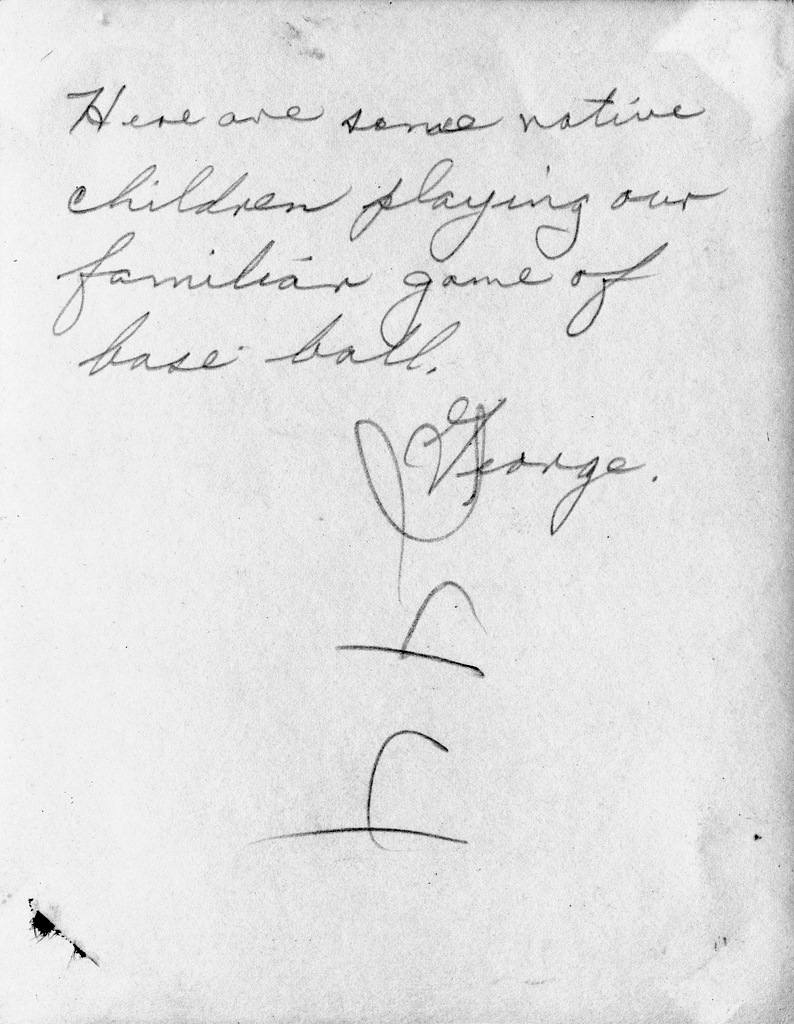 Here are some native
children playing our
familiar game of
base ball.
George.